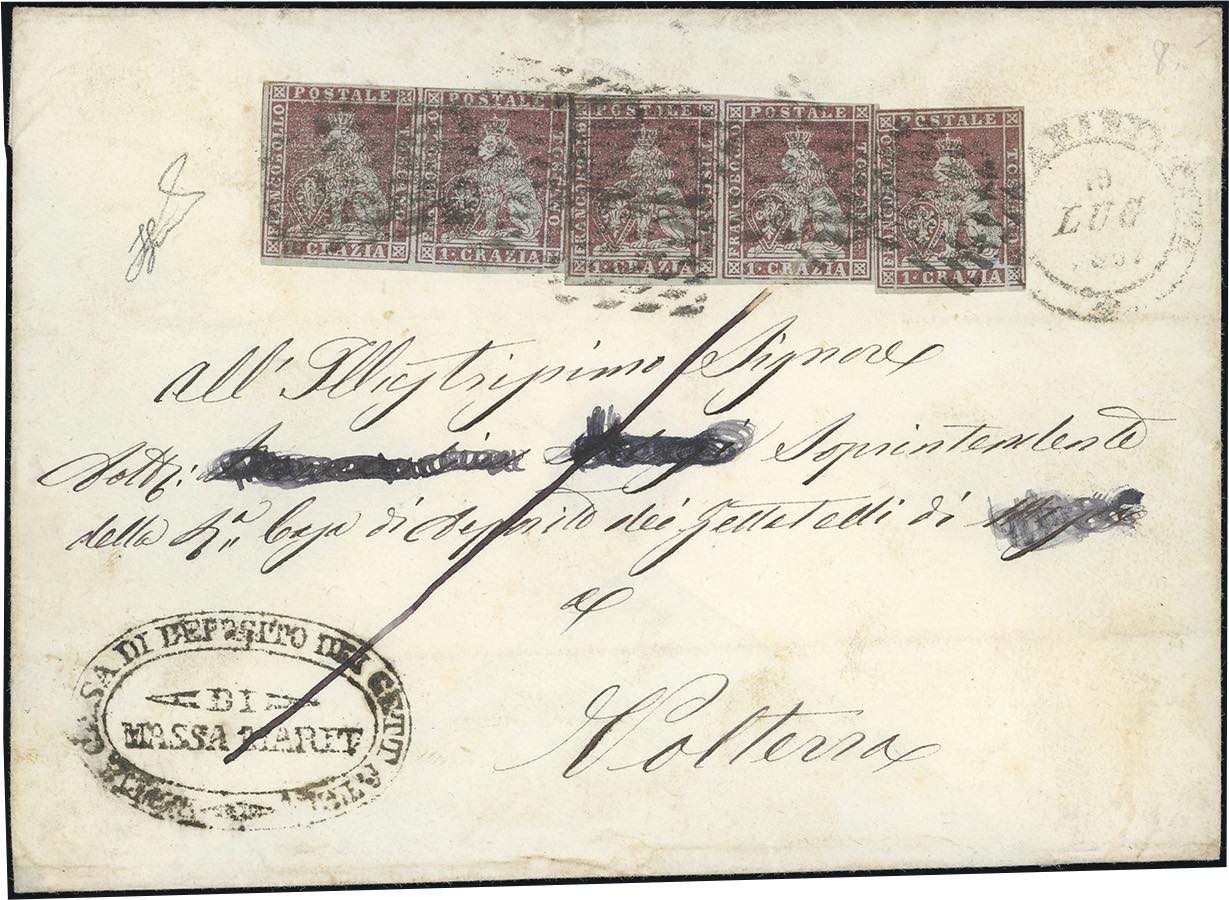 8.-
FRANCOBOLLO POSTALE TOSCANO 1 CRAZIA
FRANCOBOLLO POSTALE TOSCANO 1 CRAZIA
FRANCOBOLLO POSTALE TOSCANO 1 CRAZIA
FRANCOBOLLO POSTALE TOSCANO 1 CRAZIA
FRANCOBOLLO POSTALE TOSCANO 1 CRAZIA
LUG
All' Illustrissimo Signore
Dott: Soprintendente
della Ra. Casa di Deposito dei Gettatelli di
a
Volterra
CASA DI DEPOSITO DEI GETTATELLI
DI
MASSA MARIT